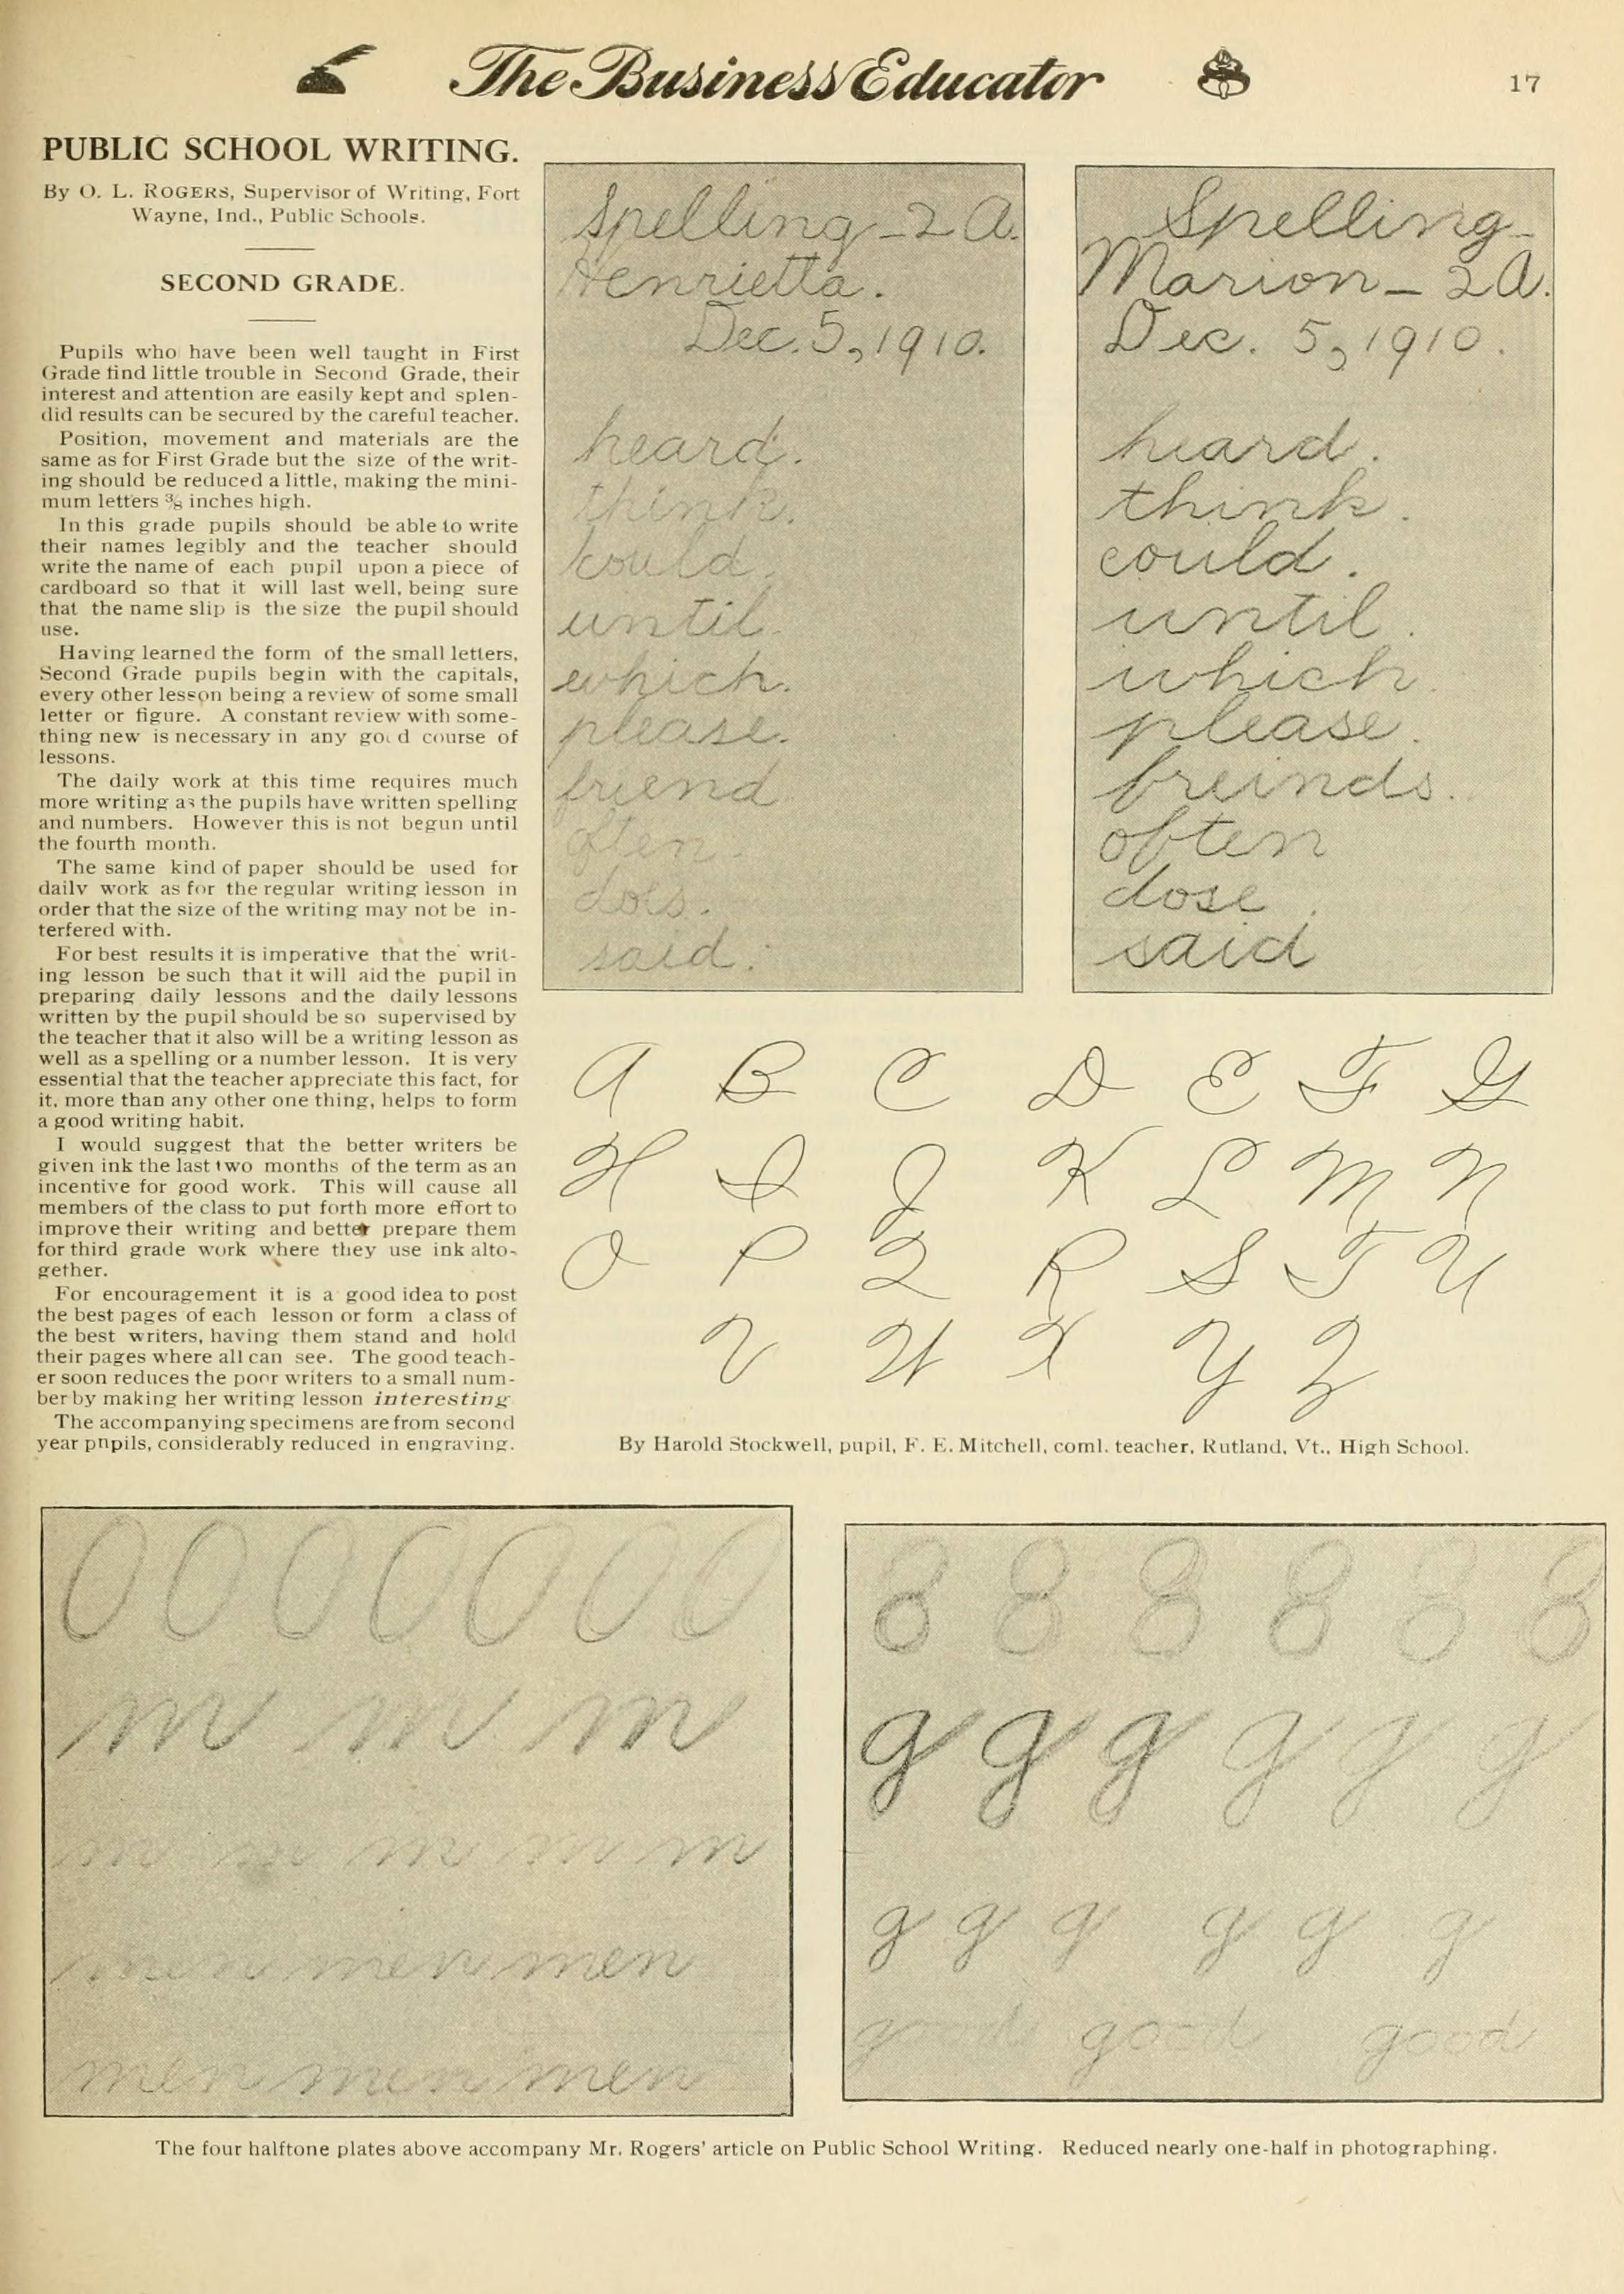 The Business Educator
17
PUBLIC SCHOOL WRITING.
By O. L. ROGERS, Supervisor of Writing, Fort
Wayne, Ind., Public Schools.
SECOND GRADE.
Pupils who have been well taught in First
Grade find little trouble in Second Grade, their
interest and attention are easily kept and splen-
did results can be secured by the careful teacher.
Position, movement and materials are the
same as for First Grade but the size of the writ-
ing should be reduced a little, making the mini-
mum letters ⅜ inches high.
In this grade pupils should be able to write
their names legibly and the teacher should
write the name of each pupil upon a piece of
cardboard so that it will last well, being sure
that the name slip is the size the pupil should
use.
Having learned the form of the small letters,
Second Grade pupils begin with the capitals,
every other lesson being a review of some small
letter or figure. A constant review with some-
thing new is necessary in any good course of
lessons.
The daily work at this time requires much
more writing as the pupils have written spelling
and numbers. However this is not begun until
the fourth month.
The same kind of paper should be used for
daily work as for the regular writing lesson in
order that the size of the writing may not be in-
terfered with.
For best results it is imperative that the writ-
ing lesson be such that it will aid the pupil in
preparing daily lessons and the daily lessons
written by the pupil should be so supervised by
the teacher that it also will be a writing lesson as
well as a spelling or a number lesson. It is very
essential that the teacher appreciate this fact, for
it, more than any other one thing, helps to form
a good writing habit.
I would suggest that the better writers be
given ink the last two months of the term as an
incentive for good work. This will cause all
members of the class to put forth more effort to
improve their writing and better prepare them
for third grade work where they use ink alto-
gether.
For encouragement it is a good idea to post
the best pages of each lesson or form a class of
the best writers, having them stand and hold
their pages where all can see. The good teach-
er soon reduces the poor writers to a small num-
ber by making her writing lesson interesting
The accompanying specimens are from second
year pnpils, considerably reduced in engraving.
Spelling - 2 A.
Henrietta.
Dec. 5, 1910.
heard.
think.
could.
until.
which.
please.
friend
often.
does.
said.
Spelling-
Marion - 2 A.
Dec. 5, 1910.
heard.
think.
could.
until.
which.
please.
freinds.
often
dose
said
A B C D E F G
H I J K L M N
O P Q R S T U
V W X Y Z
By Harold Stockwell, pupil, F. E. Mitchell, coml. teacher, Rutland, Vt., High School.
0 0 0 0 0 0 0
m m m
m m m m m
men men men
men men men
8 8 8 8 8 8
g g g g g g
g g g g g g
good good good
The four halftone plates above accompany Mr. Rogers' article on Public School Writing. Reduced nearly one-half in photographing.